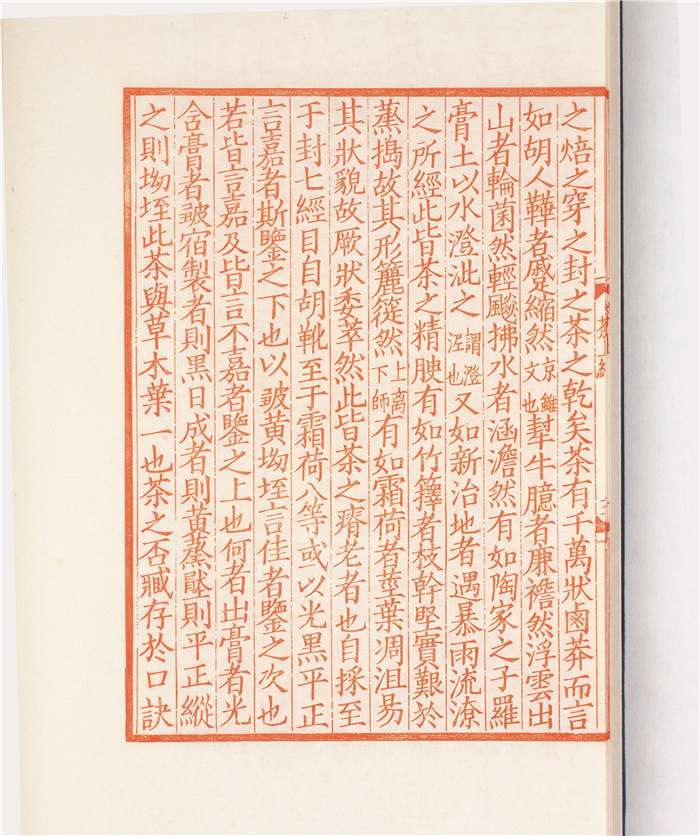 之焙之穿之封之茶之乾矣茶有千萬狀鹵莽而言
如胡人鞾者蹙縮然京錐文也犎牛臆者廉襜然浮雲出
山者輪菌然輕飈拂水者涵澹然有如陶家之子羅
膏土以水澄泚之謂澄泥也又如新治地者遇暴雨流潦
之所經此皆茶之精腴有如竹籜者枝幹堅實艱於
蒸搗故其形籭簁然上離下師有如霜荷者莖葉凋沮易
其狀貌故厥狀委萃然此皆茶之瘠老者也自採至
于封七經目自胡靴至于霜荷八等或以光黑平正
言嘉者斯鑒之下也以皺黃坳垤言佳者鑒之次也
若皆言嘉及皆言不嘉者鑒之上也何者出膏者光
含膏者皺宿製者則黑日成者則黃蒸壓則平正縱
之則坳垤此茶與草木葉一也茶之否臧存於口訣